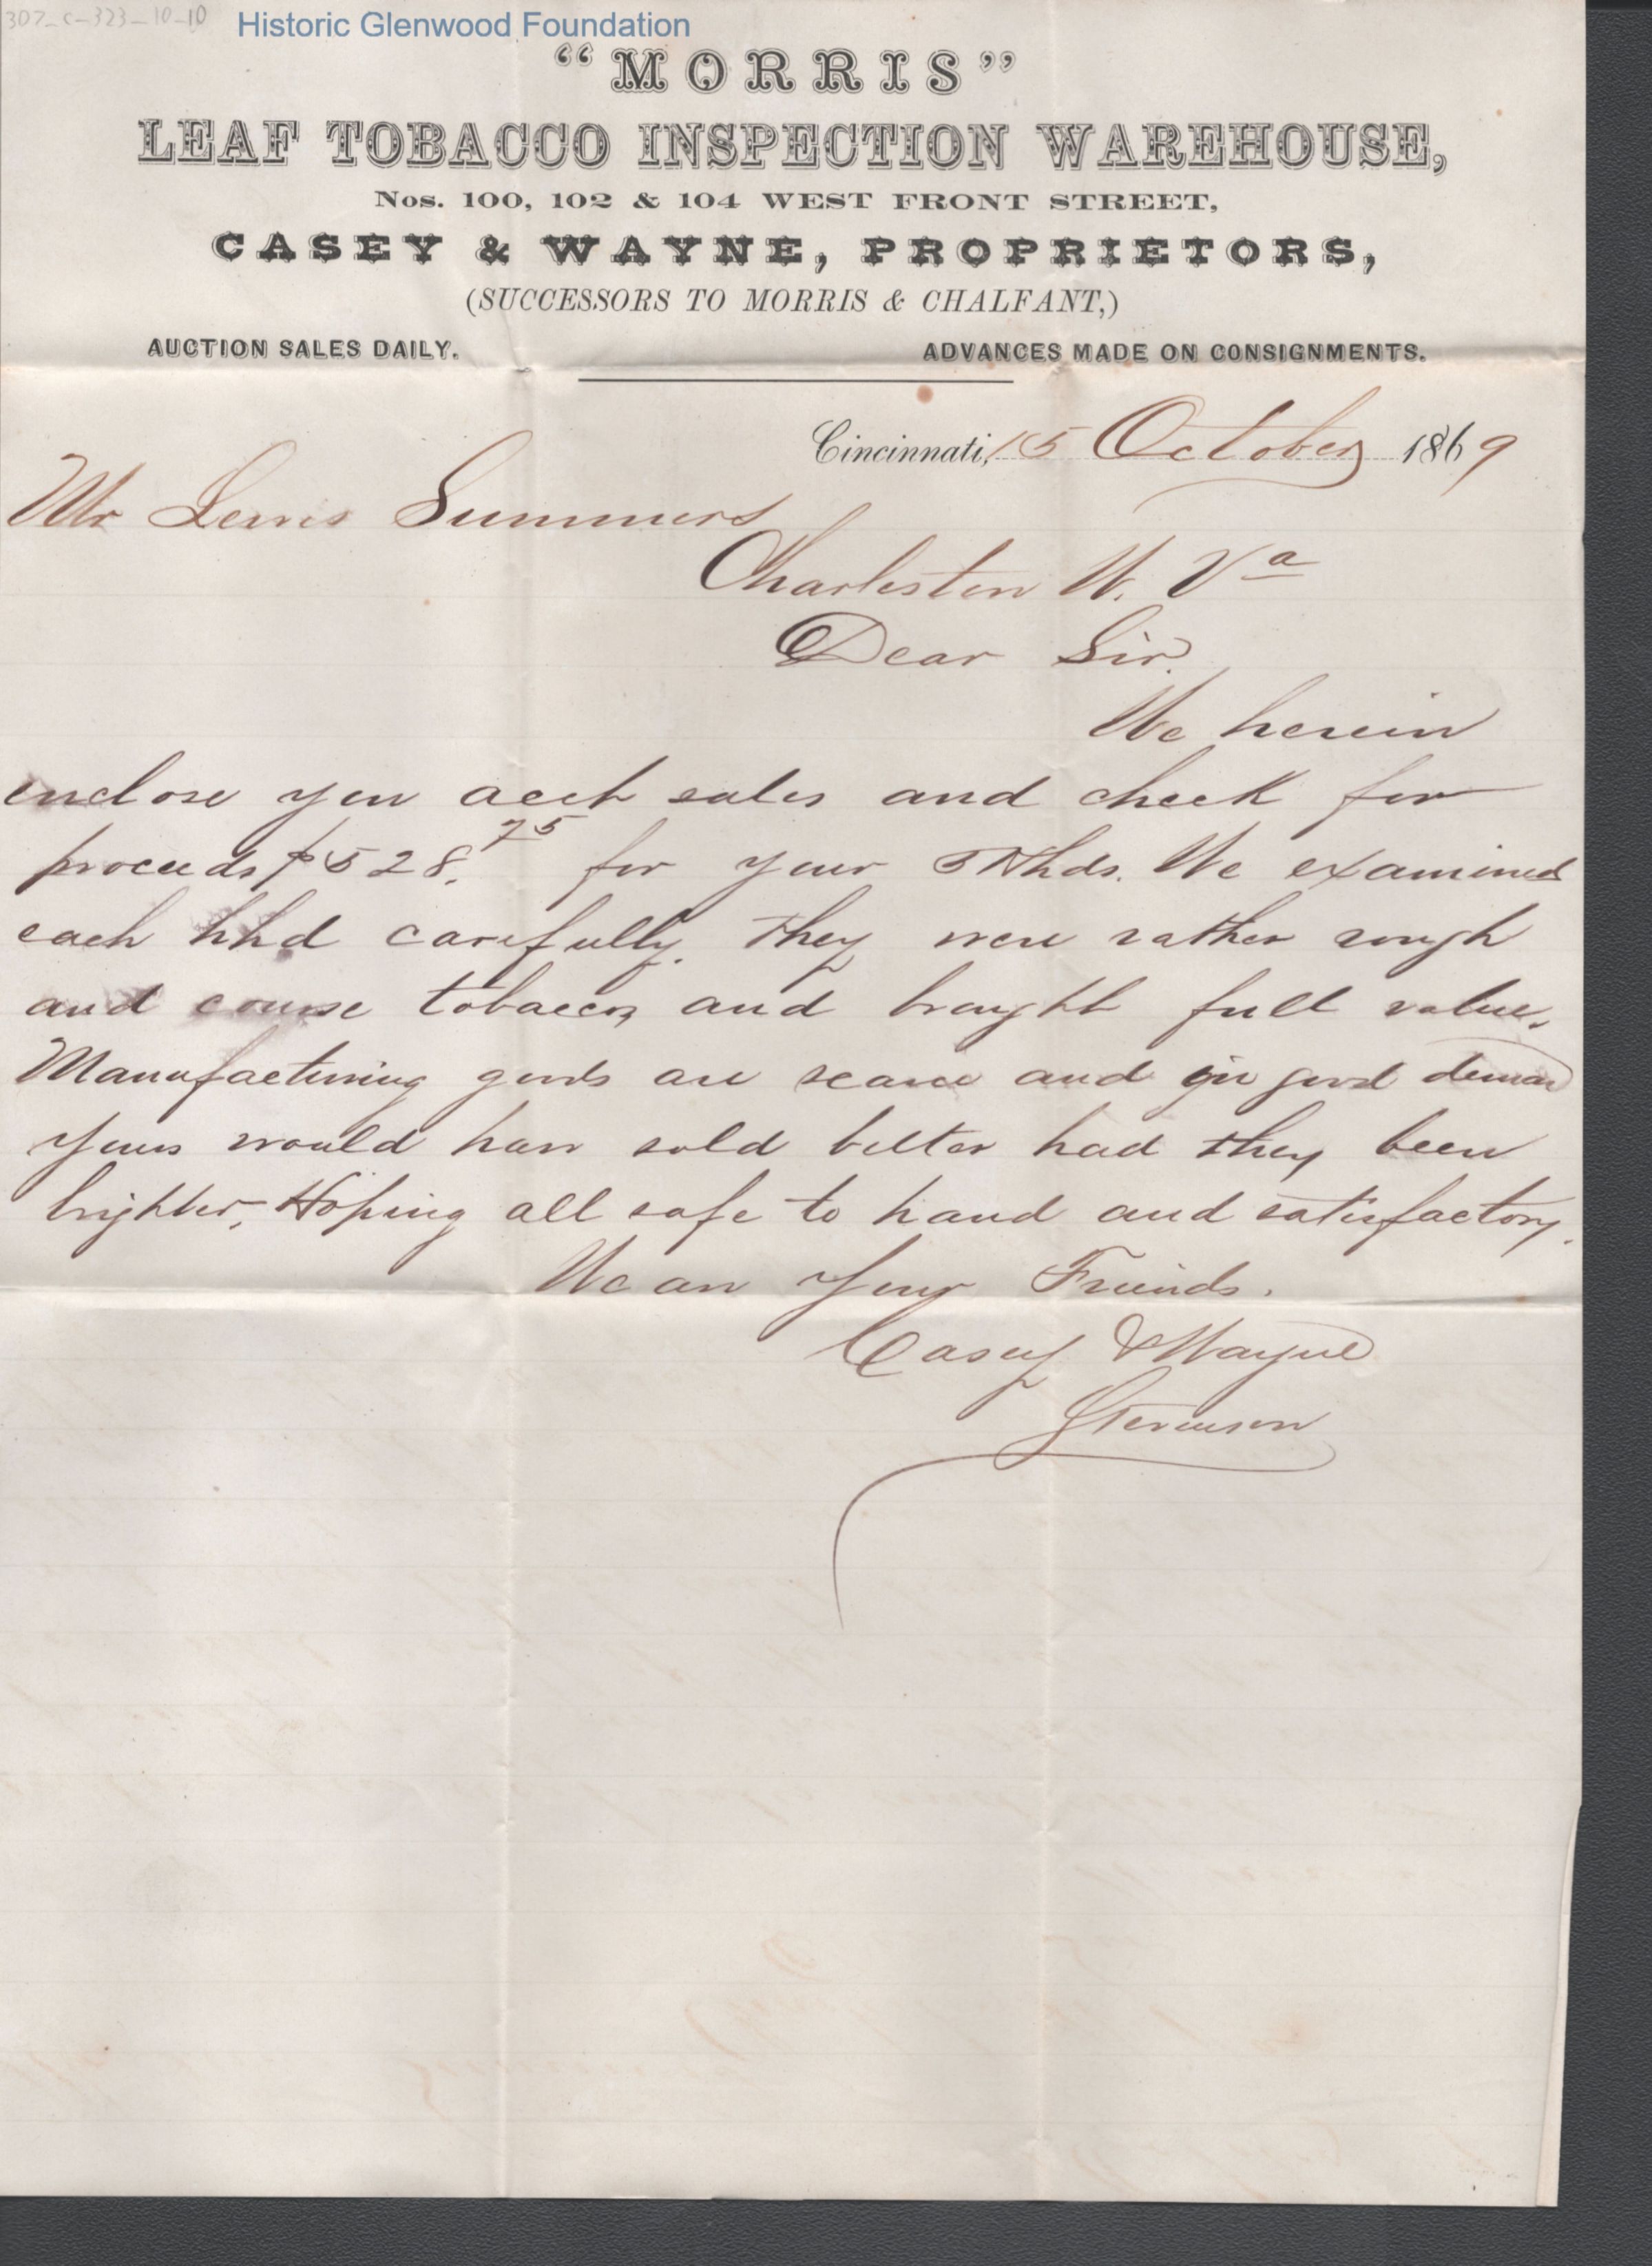 307_C-323-10-10
Historic Glenwood Foundation
“MORRIS”
LEAF TOBACCO INSPECTION WAREHOUSE,
Nos. 100, 102 & 104 WEST FRONT STREET,
CASEY & WAYNE, PROPRIETORS,
(SUCCESSORS TO MORRIS & CHALFANT,)
AUCTION SALES DAILY. ADVANCES MADE ON CONSIGNMENTS.
Cincinnati, 15 October 1869
Mr Lewis Summers
Charleston W. Va
Dear Sir.
We herein
enclose you acct sales and check for
proceeds $528.75 for your 5 Hhds. We examined
each hhd carefully. They were rather rough
and course tobacco, and brought full value.
Manufacturing goods are scarce and in good deman
yours would have sold better had they been
brighter. Hoping all safe to hand and satisfactory.
We are your Friends.
Casey & Wayne
Stevenson